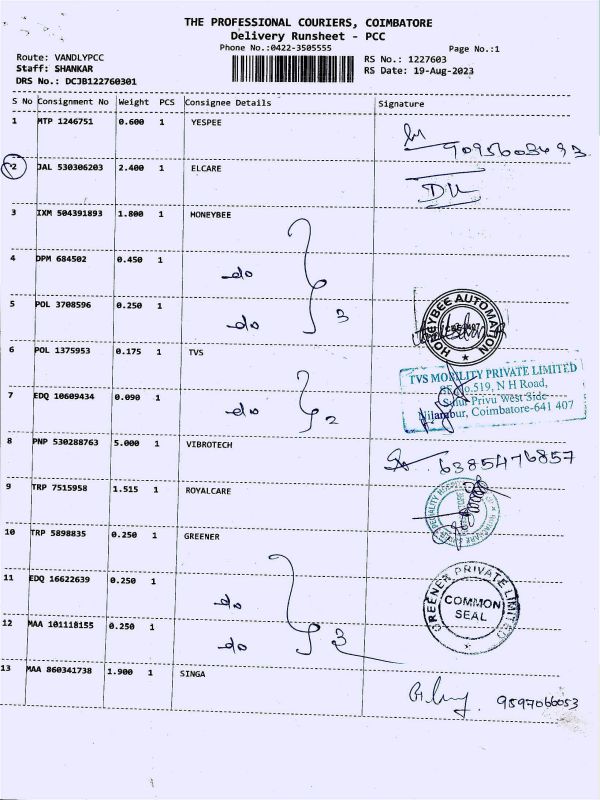 THE PROFESSIONAL COURIERS, COIMBATORE
Delivery Runsheet - PCC
Phone No.:0422-3505555
Page No.:1
Route: VANDLYPCC
Staff: SHANKAR
DRS No.: DCJB122760301
RS No.: 1227603
RS Date: 19-Aug-2023
S No Consignment No Weight PCS Consignee Details Signature
1 MTP 1246751 0.600 1 YESPEE
9095603493
2 JAL 530306203 2.400 1 ELCARE
3 IXM 504391893 1.800 1 HONEYBEE
4 DPM 684502 0.450 1 do
5 POL 3708596 0.250 1 do 3
HONEYBEE AUTOMATION
6 POL 1375953 0.175 1 TVS
TVS MOBILITY PRIVATE LIMITED
SF.No.519, N H Road,
Privu West Side
Nilambur, Coimbatore-641 407
7 EDQ 10609434 0.090 1 do 2
8 PNP 530288763 5.000 1 VIBROTECH
6385476857
9 TRP 7515958 1.515 1 ROYALCARE
10 TRP 5898835 0.250 1 GREENER
11 EDQ 16622639 0.250 1 do
GREENER PRIVATE LIMITED
COMMON
SEAL
12 MAA 101118155 0.250 1 do 3
13 MAA 860341738 1.900 1 SINGA
9597066053